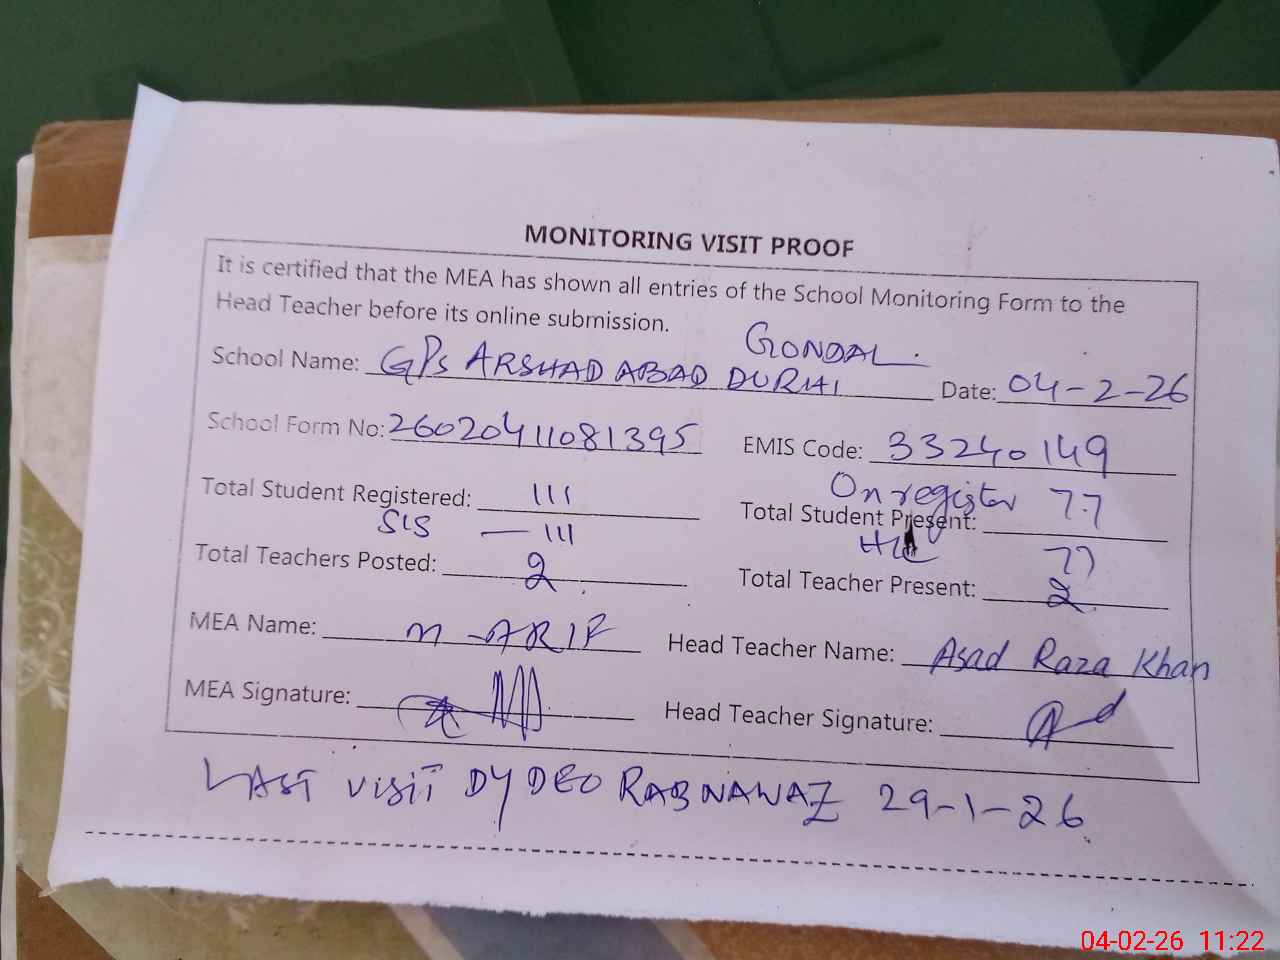 MONITORING VISIT PROOF
It is certified that the MEA has shown all entries of the School Monitoring Form to the
Head Teacher before its online submission.
GONDAL
School Name: GPS ARSHAD ABAD DURHI Date: 04-2-26
School Form No: 26020411081395 EMIS Code: 33240149
On register 77
Total Student Registered: 111 Total Student Present:
SIS — 111 HC 77
Total Teachers Posted: 2 Total Teacher Present: 2
MEA Name: M-ARIF Head Teacher Name: Asad Raza Khan
MEA Signature: Head Teacher Signature:
LAST VISIT DY DEO RABNAWAZ 29-1-26
04-02-26 11:22